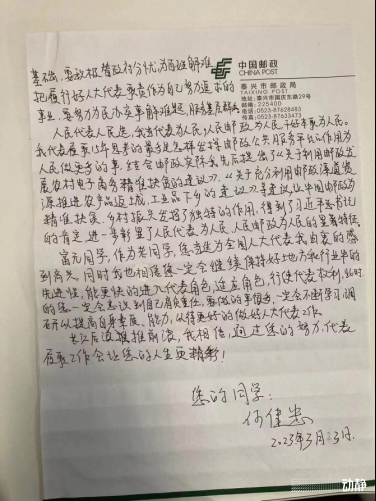 中国邮政
CHINA POST
泰兴市邮政局
TAIXING POST
地址:泰兴市国庆东路29号
邮编:225400
电话:0523-87628483
传真:0523-87633473
基础,要积极替政府分忧为百姓解难
把履行好人大代表职责作为自己努力追求的
事业,要努力为民办实事解难题,服务基层群众
人民代表人民选,我当代表为人民,人民邮政为人民干好本职为人民。
我代表履职15年思考的最多是怎样发挥邮政公共服务平台的作用为
人民做更多的事,结合邮政实际我先后提出了《关于利用邮政发
展农村电子商务精准扶贫的建议》、《关于充分利用邮政渠道资
源推进农产品返城,工业品下乡的建议》等建议,让中国邮政为
精准扶贫、乡村振兴发挥了独特的作用,得到了习近平总书记
的肯定,进一步彰显了人民代表为人民、人民邮政为人民的显著特征。
富元同学,作为老同学,您当选为全国人大代表我由衷的感
到高兴,同时我也相信您一定会继续保持好地方和行业中的
先进性,能更快的进入代表角色,适应角色,行使代表权利,此时
的您一定会意识到自己肩负重任,要做的事很多,一定会不断学习、调
研以提高自身素质、能力,从得更好的做好人大代表工作。
长江后浪推前浪,我相信,通过您的努力,代表
履职工作会让您的人生更精彩!
您的同学:
何健忠
2023年3月3日.
动静